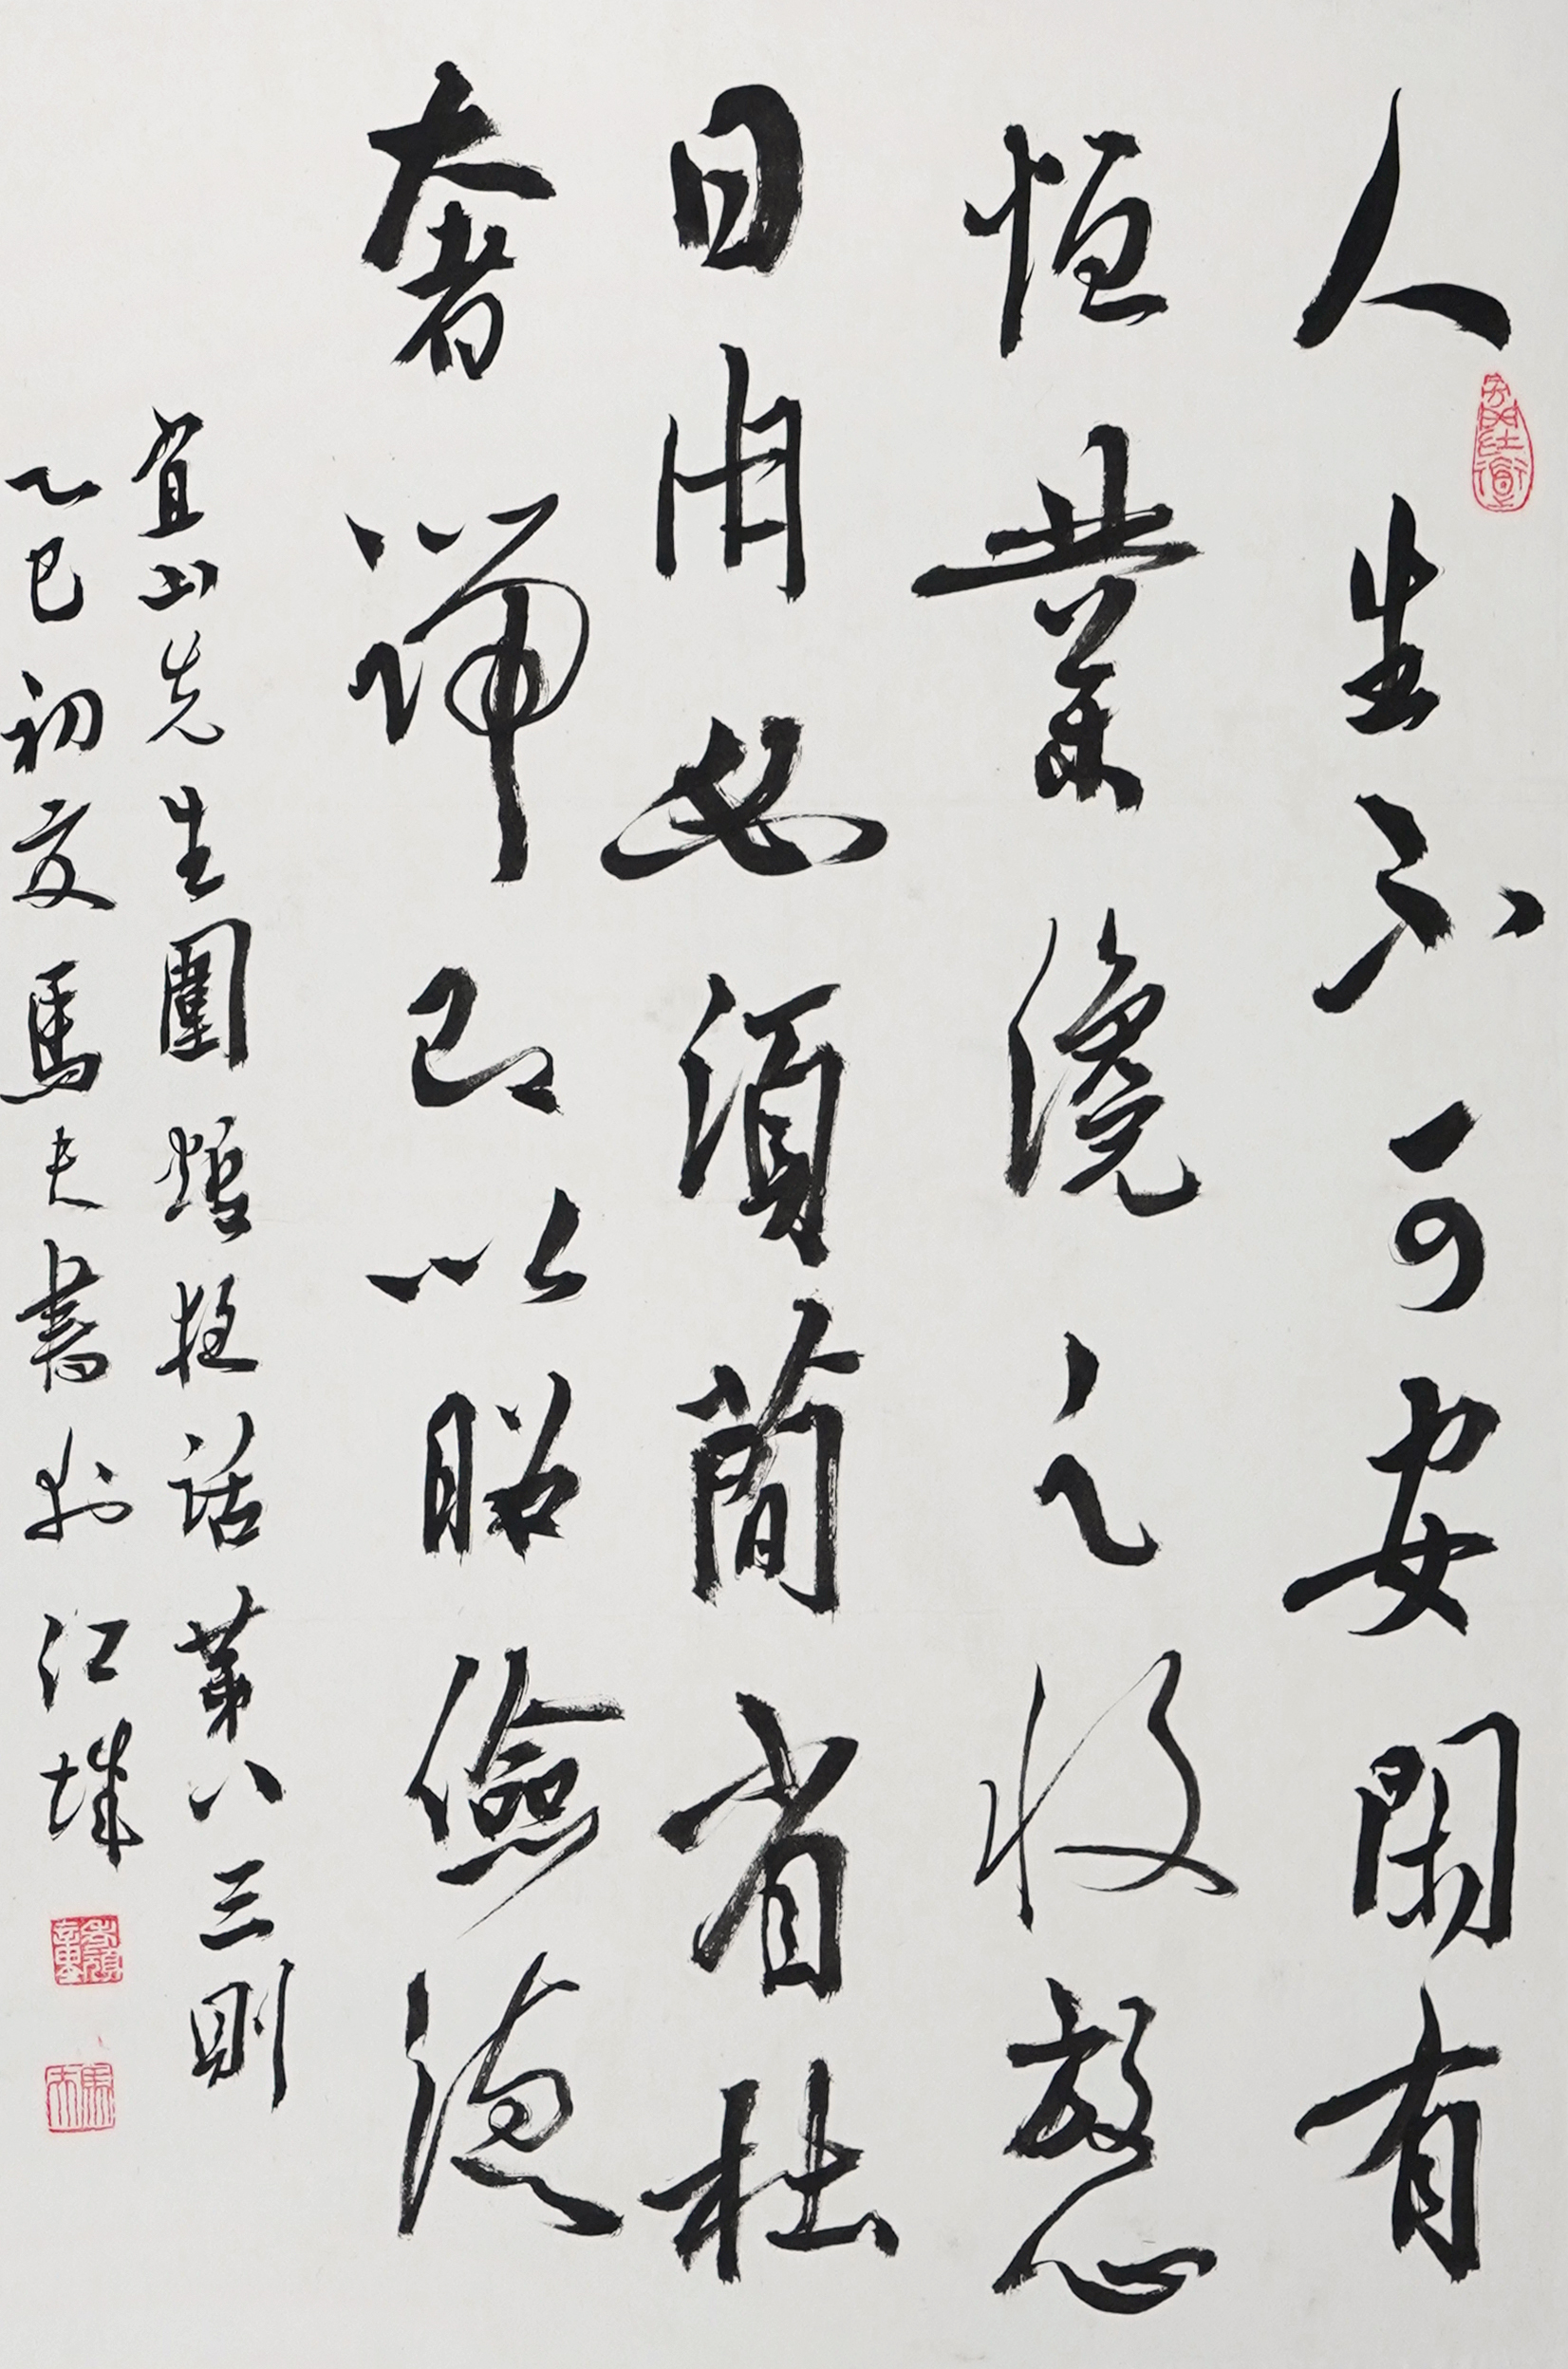 人生不可安閑有
恒業纔足收放心
日用必須簡省杜
奢端即以昭儉德
宜山先生圍爐夜話第八三則
乙巳初夏馬夫書於江城